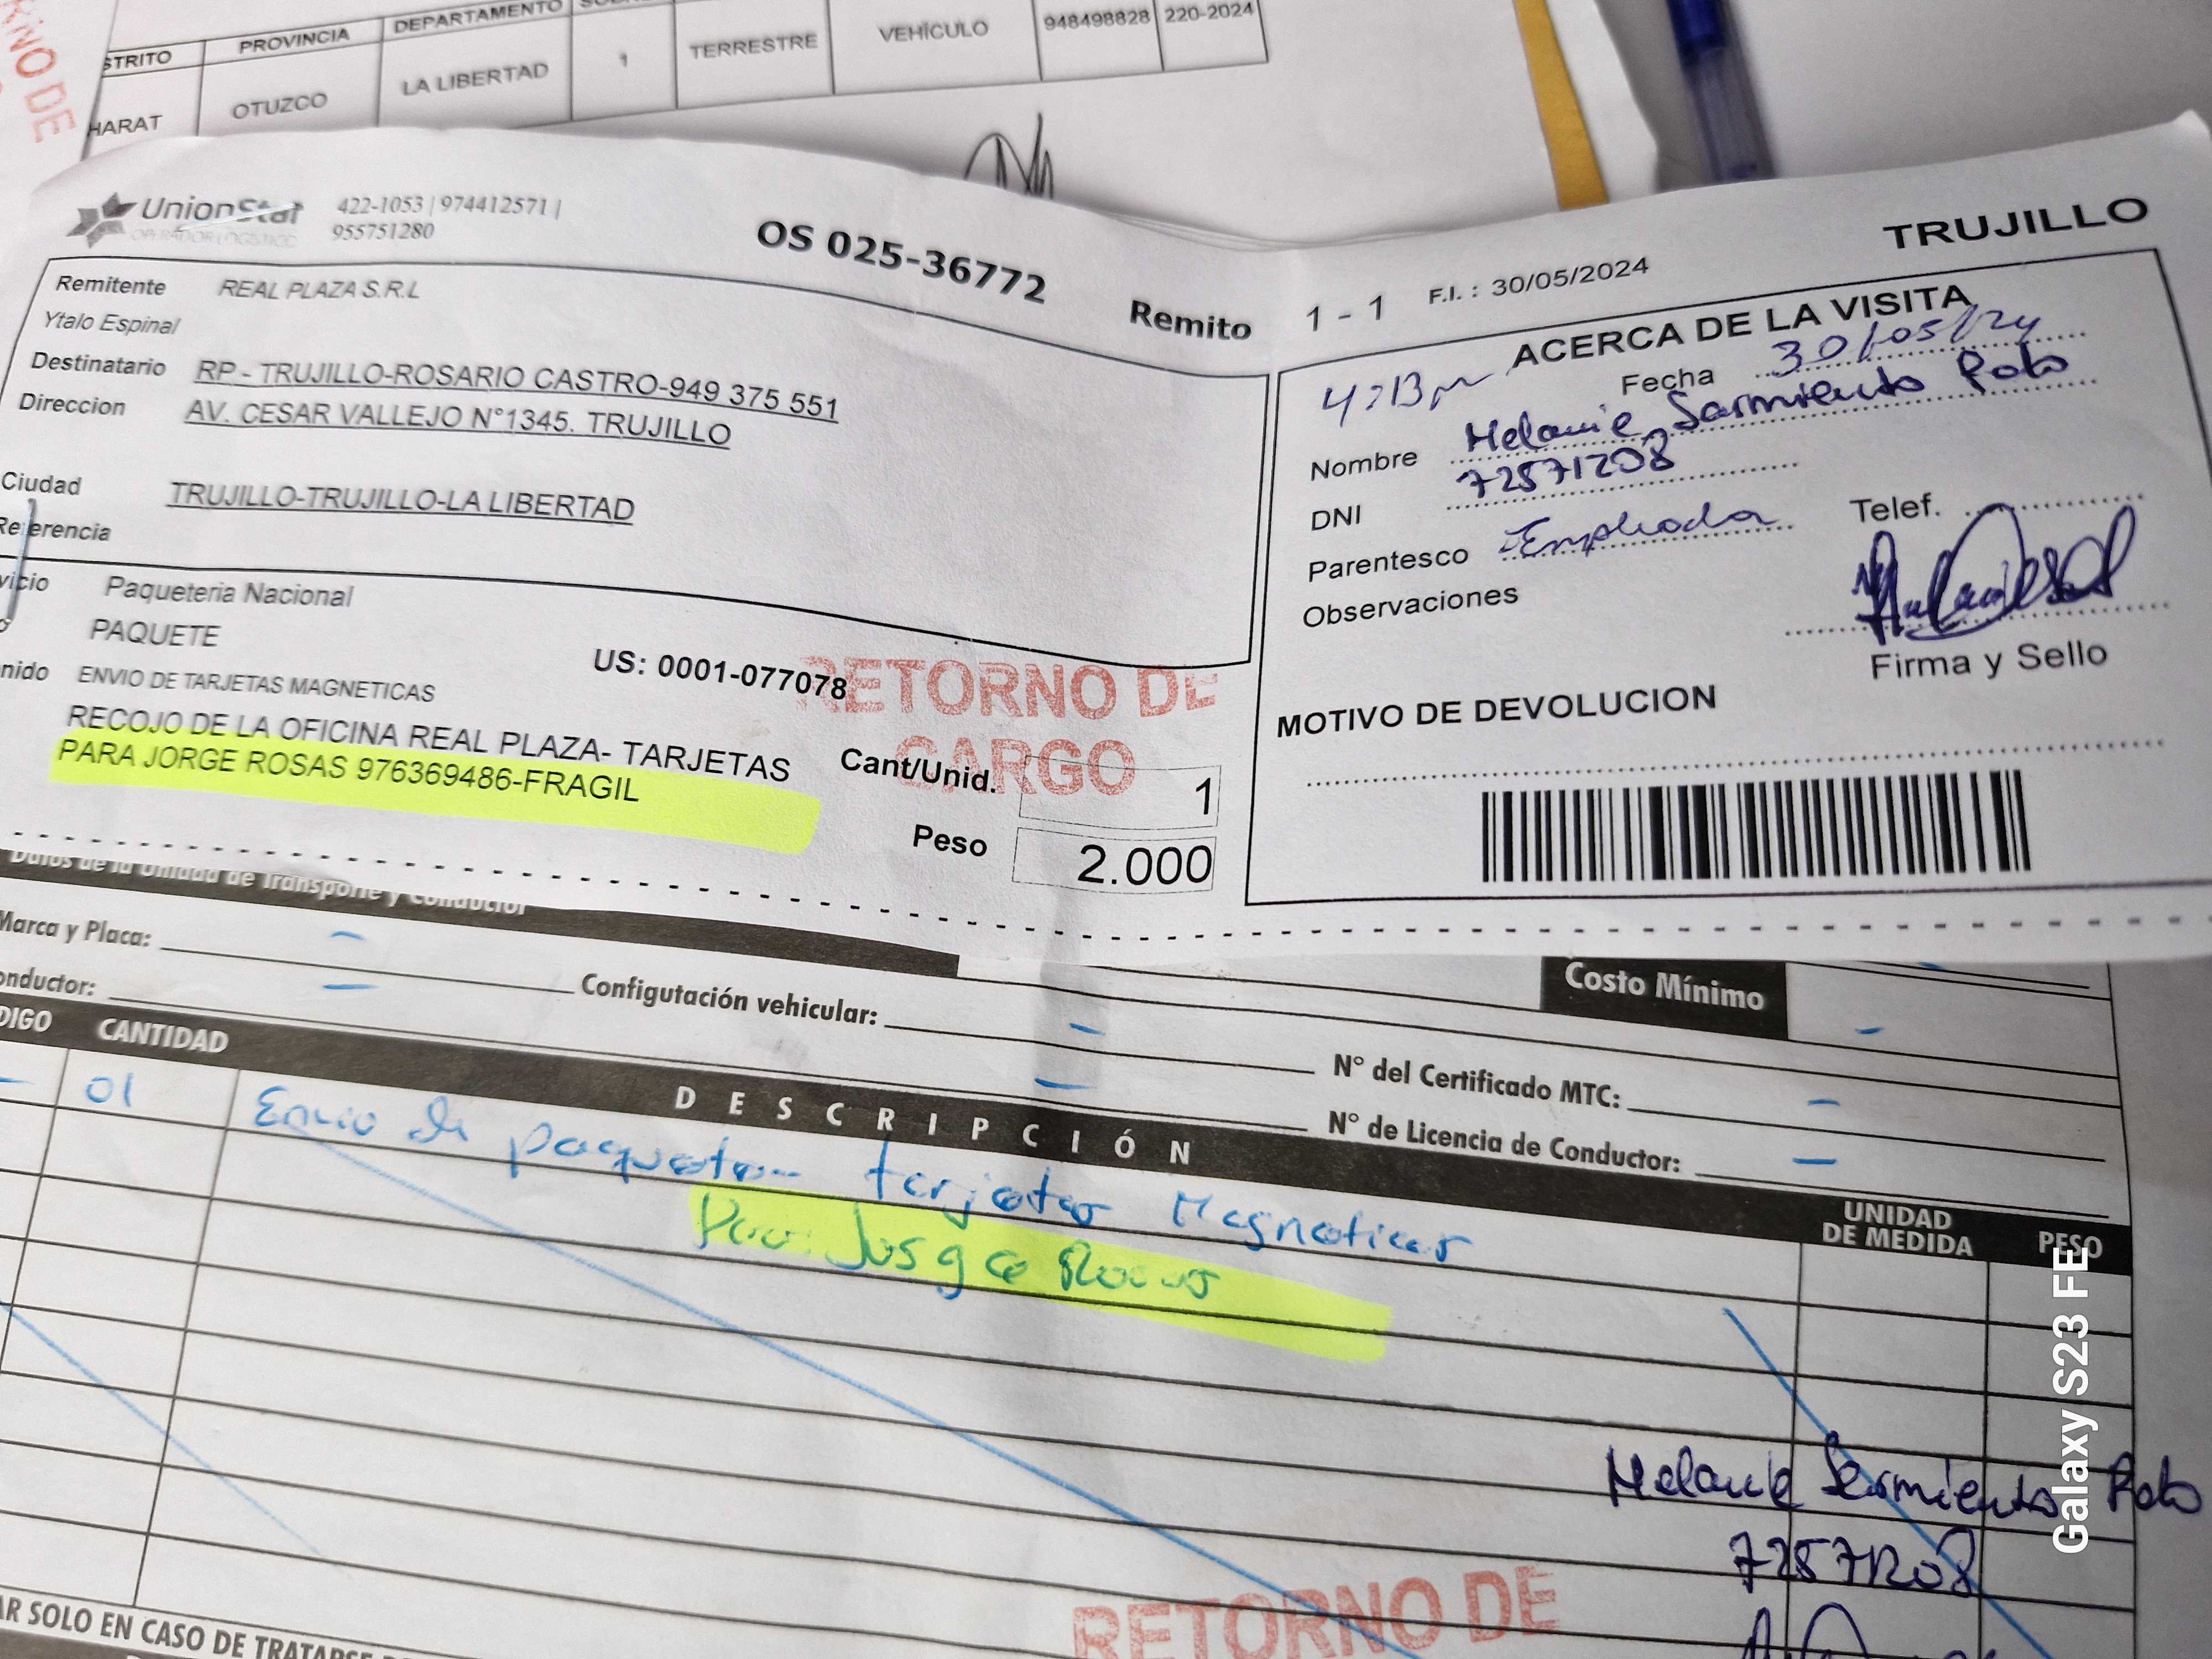 STRITO PROVINCIA DEPARTAMENTO
HARAT OTUZCO LA LIBERTAD 1 TERRESTRE VEHÍCULO 948498828 220-2024
UnionStar
OPERADOR LOGISTICO
422-1053 | 974412571 |
955751280
OS 025-36772
Remito 1 - 1
F.I. : 30/05/2024
TRUJILLO
Remitente REAL PLAZA S.R.L
Ytalo Espinal
Destinatario RP - TRUJILLO-ROSARIO CASTRO-949 375 551
Direccion AV. CESAR VALLEJO N°1345. TRUJILLO
Ciudad TRUJILLO-TRUJILLO-LA LIBERTAD
Referencia
vicio Paqueteria Nacional
PAQUETE
nido ENVIO DE TARJETAS MAGNETICAS
US: 0001-077078
RECOJO DE LA OFICINA REAL PLAZA- TARJETAS
PARA JORGE ROSAS 976369486-FRAGIL
RETORNO DE
CARGO
Cant/Unid. 1
Peso 2.000
ACERCA DE LA VISITA
4:13pm Fecha 30/05/24
Nombre Melanie Sarmiento Polo
DNI 72571208
Parentesco Empleada Telef.
Observaciones
Firma y Sello
MOTIVO DE DEVOLUCION
Datos de la Unidad de Transporte y Conductor
Marca y Placa: –
onductor: –
Configutación vehicular: –
Costo Mínimo –
N° del Certificado MTC: –
N° de Licencia de Conductor: –
DIGO CANTIDAD DESCRIPCIÓN UNIDAD DE MEDIDA PESO
– 01 Envio de paquete- tarjetas Magneticas
Para: Jorge Rosas
Melanie Sarmiento Polo
72571208
RETORNO DE
AR SOLO EN CASO DE TRATARSE
Galaxy S23 FE